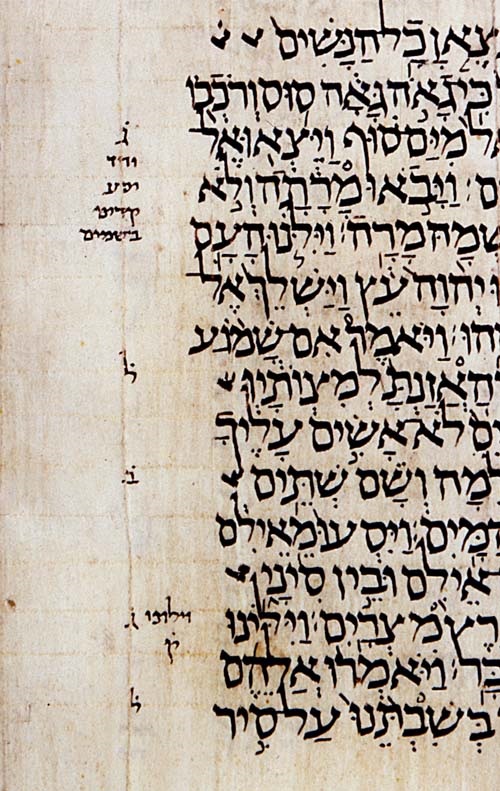 צֶאןָ כָל הַנָּשִׁים
כִּי גָאֹה גָּאָה סוּס וְרֹכְבוֹ
אֵל מִיַּם סוּף וַיֵּצְאוּ אֶל
ם׃ וַיָּבֹאוּ מָרָתָה וְלֹא
שְׁמָהּ מָרָה׃ וַיִּלֹּנוּ הָעָם
וּ יְהוָה עֵץ וַיַּשְׁלֵךְ אֶל
הוּ׃ וַיֹּאמֶר אִם שָׁמוֹעַ
הַאֲזַנְתָּ לְמִצְוֺתָיו
ים לֹא אָשִׂים עָלֶיךָ
לִמָה וְשָׁם שְׁתֵּים
הַמָּיִם׃ וַיִּסְעוּ מֵאֵילִם
אֵילִם וּבֵין סִינָי
רֶץ מִצְרָיִם׃ וַיִּלִּינוּ
בָּר׃ וַיֹּאמְרוּ אֲלֵהֶם
בְּשִׁבְתֵּנוּ עַל סִיר
ג
בשמים
ל
ב
וילונו
ק
ל